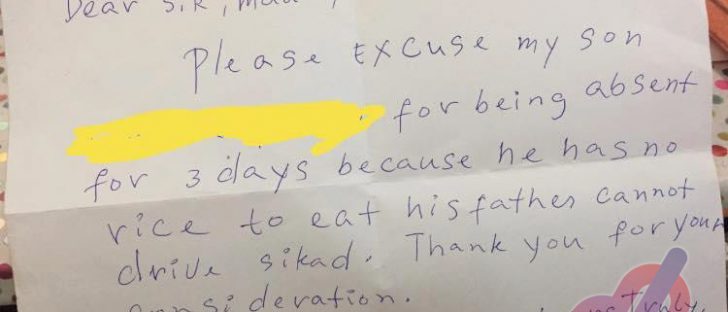 Dear Sir, Mad
Please Excuse my son
for being absent
for 3 days because he has no
rice to eat his father cannot
drive sikad. Thank you for your
consideration.
Truly,